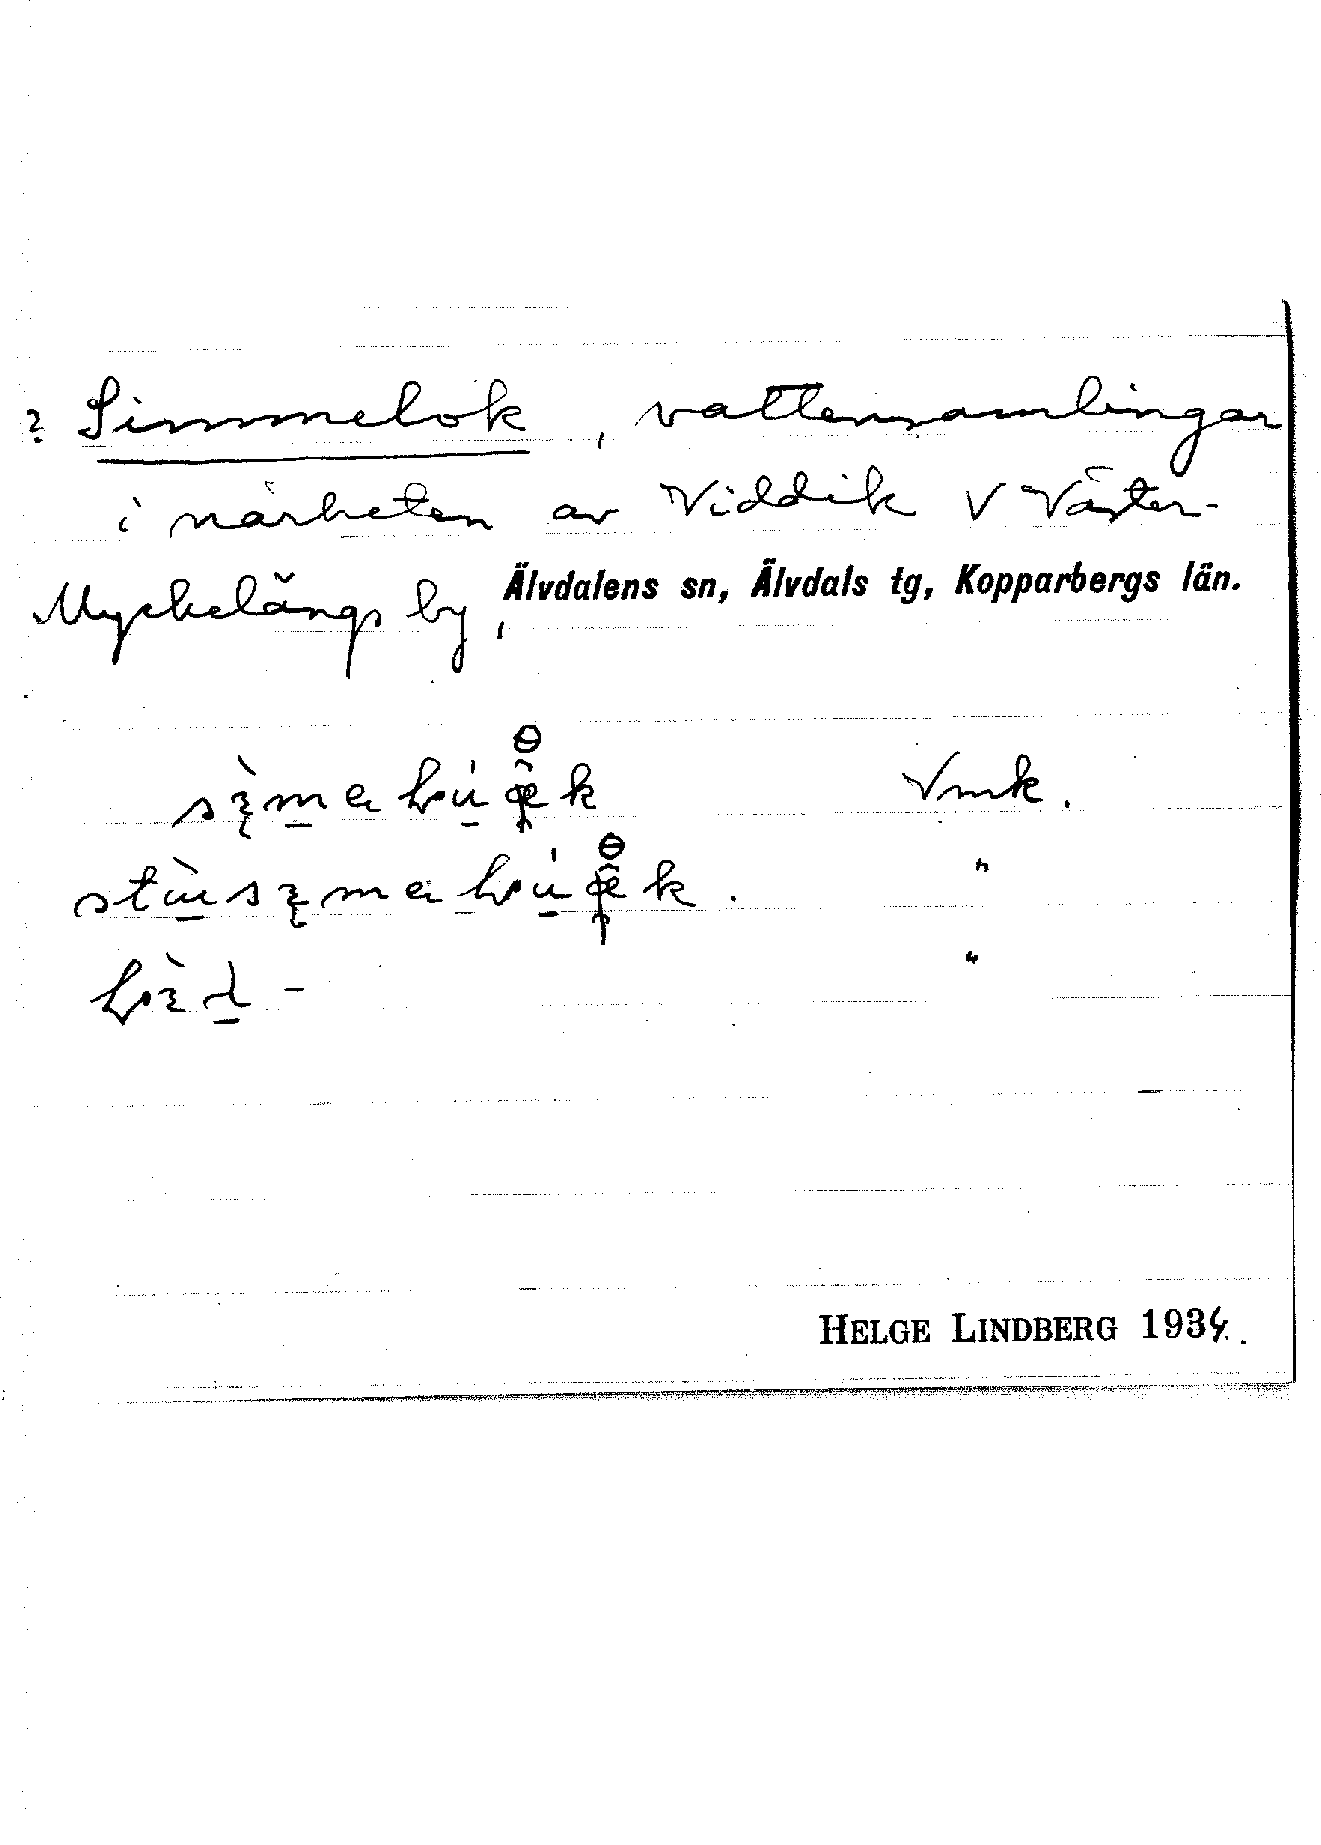 ? Simmelok, vattensamlingar
i närheten av Viddik V Väster-
Myckelängs by, Älvdalens sn, Älvdals tg, Kopparbergs län.
Vmk.
"
"
HELGE LINDBERG 1934.